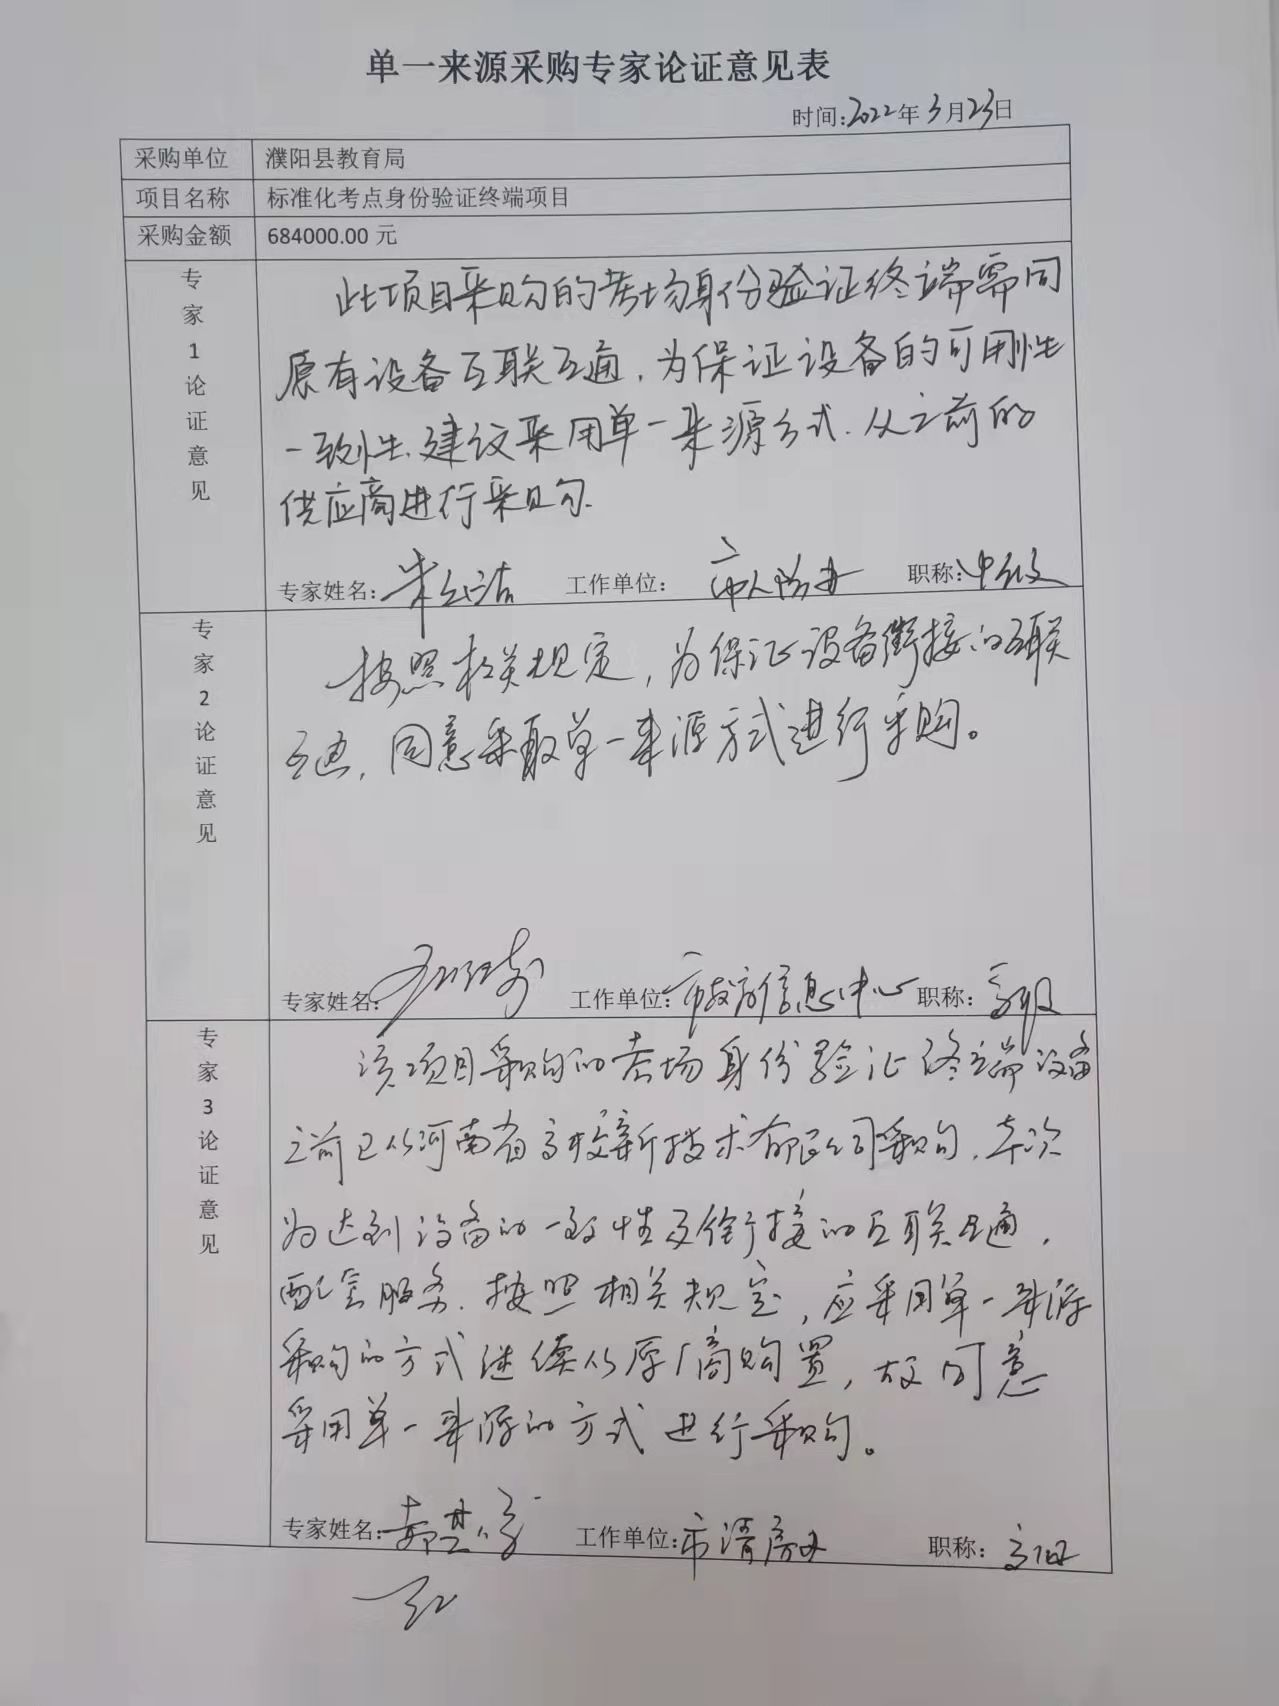 单一来源采购专家论证意见表
时间:2022年3月23日
采购单位 濮阳县教育局
项目名称 标准化考点身份验证终端项目
采购金额 684000.00 元
专家1论证意见
此项目采购的考场身份验证终端需同
原有设备互联互通,为保证设备的可用性
一致性,建议采用单一来源方式.从之前的
供应商进行采购.
专家姓名: 工作单位: 市人防办 职称:中级
专家2论证意见
按照相关规定,为保证设备衔接的互联
互通,同意采取单一来源方式进行采购。
专家姓名: 工作单位:市教育信息中心 职称:高级
专家3论证意见
该项目采购的考场身份验证终端设备
之前已从河南省高校新技术有限公司采购,本次
为达到设备的一致性及衔接的互联互通,
配套服务.按照相关规定,应采用单一来源
采购的方式继续从原厂商购置,故同意
采用单一来源的方式进行采购。
专家姓名: 工作单位:市 职称: